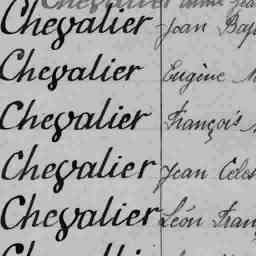 Chevalier
Chevalier Jean Bap
Chevalier Eugène
Chevalier François
Chevalier Jean Celes
Chevalier Léon Fran